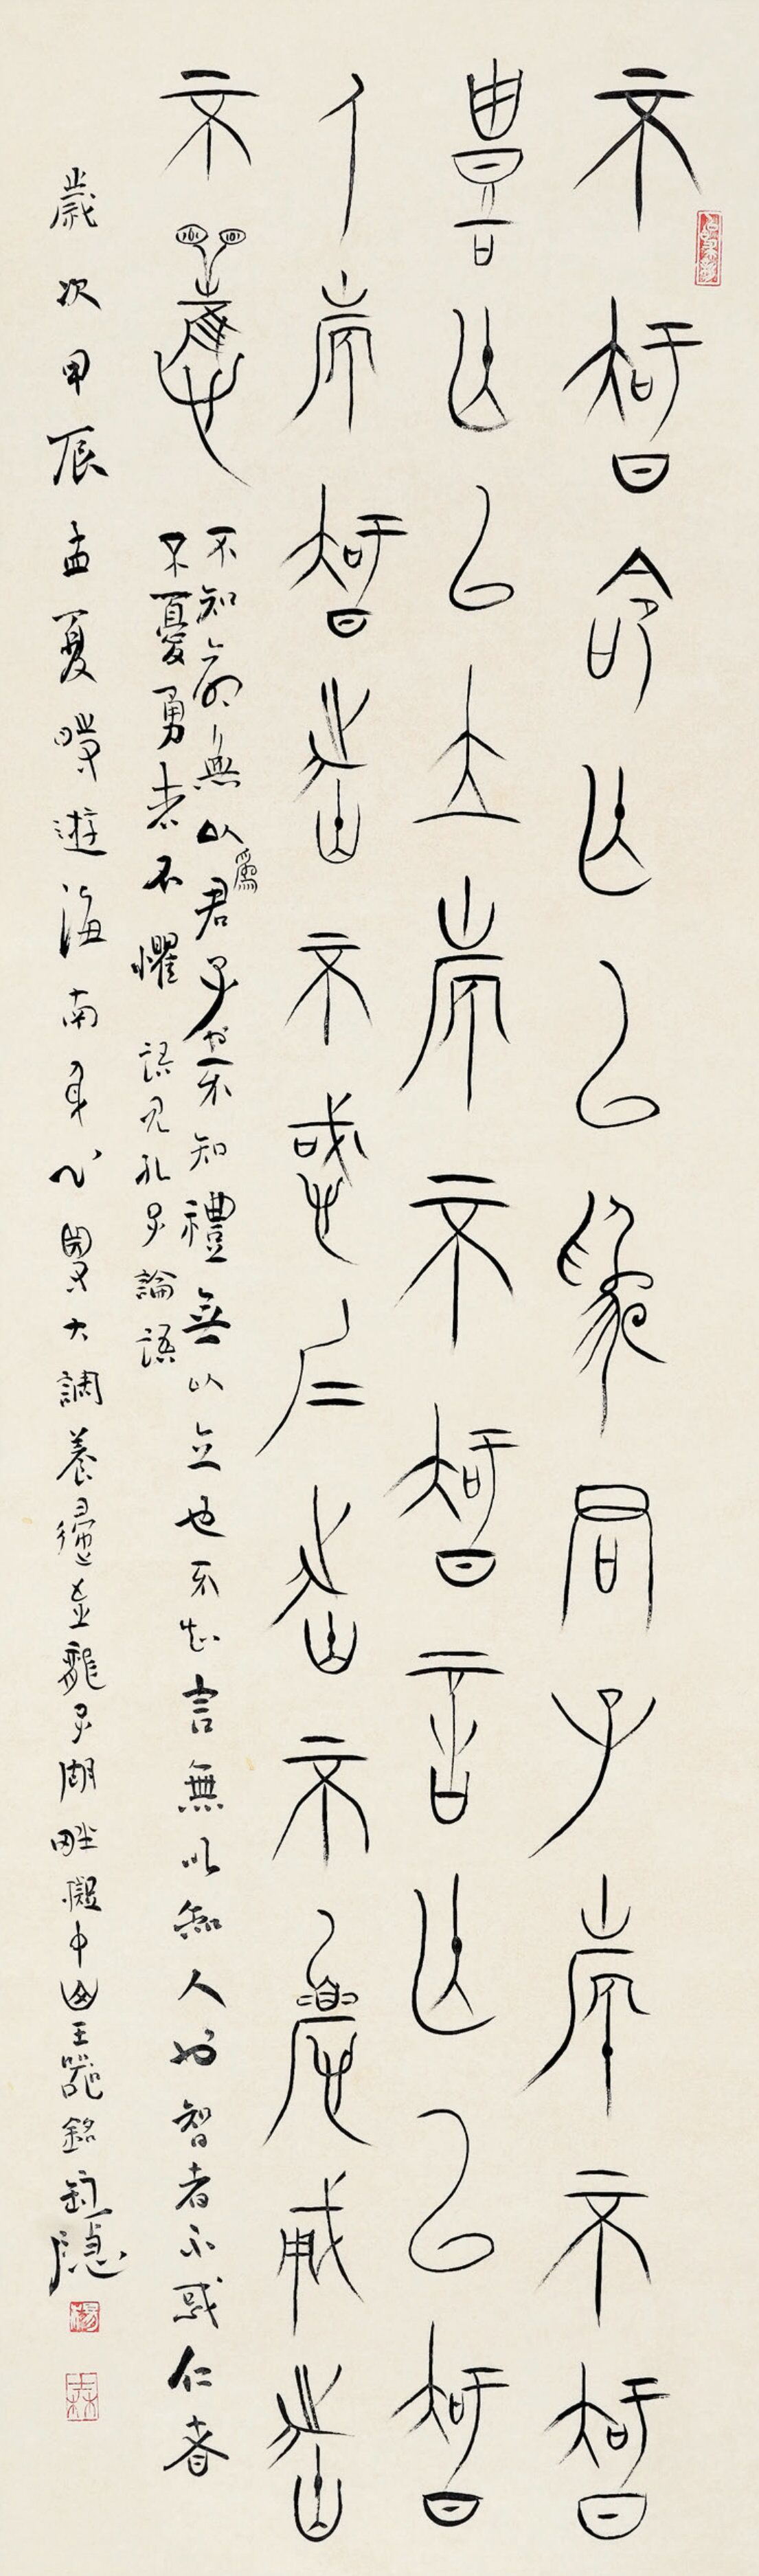 不智命亡以為君子也不智
豊亡以立也不智言亡以智
人也智者不惑仁者不憂勇者
不懼
不知命無以為君子也不知禮無以立也不知言無以知人也智者不惑仁者
不憂勇者不懼 語見孔子論語
歲次甲辰孟夏遊海南身心大調養龍子湖畔擬中山王器銘